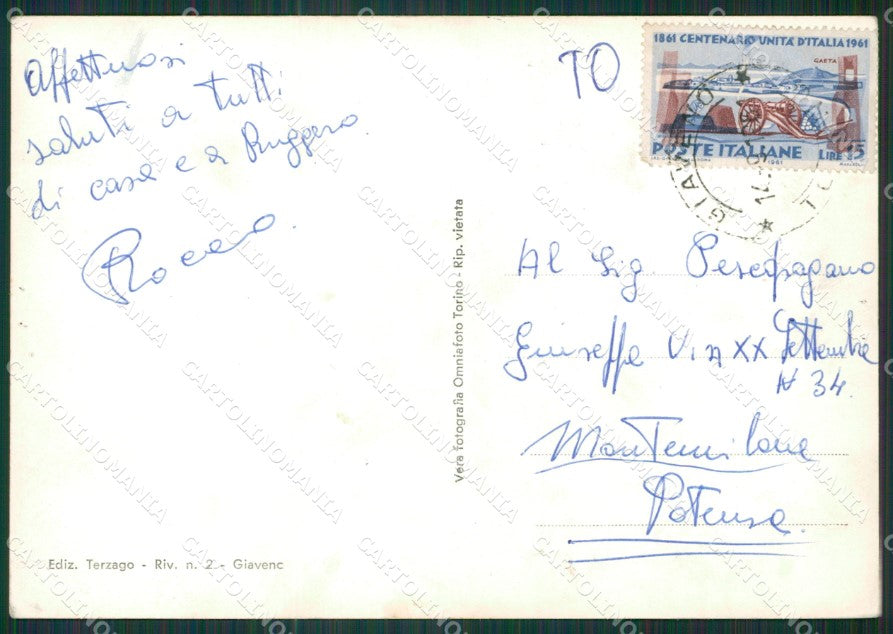 Affettuosi
saluti a tutti
di casa e a Ruggero.
Rocco
Ediz. Terzago - Riv. n. 2 - Giavenc
Vera fotografia Omniafoto Torino - Rip. vietata
TO
1861 CENTENARIO UNITÀ D'ITALIA 1961
GAETA
POSTE ITALIANE LIRE 15
1961
GIAVENO
TO
Al Sig. Pescopagano
Giuseppe Via XX Settembre
N 34.
Montemilone
Potenza.
CARTOLINOMANIA